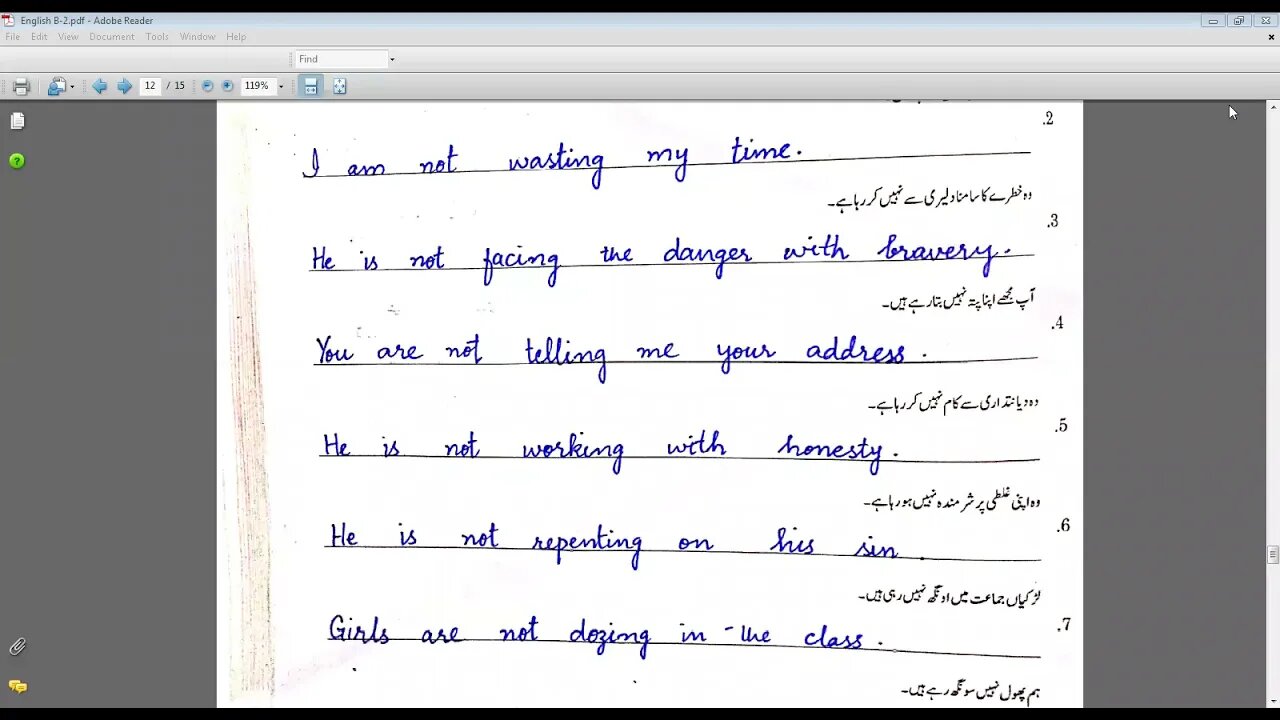 English B-2.pdf - Adobe Reader
File Edit View Document Tools Window Help
Find
12 / 15 119%
.2
I am not wasting my time.
وہ خطرے کا سامنا دلیری سے نہیں کر رہا ہے۔
.3
He is not facing the danger with bravery.
آپ مجھے اپنا پتہ نہیں بتا رہے ہیں۔
.4
You are not telling me your address.
وہ دیانتداری سے کام نہیں کر رہا ہے۔
.5
He is not working with honesty.
وہ اپنی غلطی پر شرمندہ نہیں ہو رہا ہے۔
.6
He is not repenting on his sin.
لڑکیاں جماعت میں اونگھ نہیں رہی ہیں۔
.7
Girls are not dozing in the class.
ہم پھول نہیں سونگھ رہے ہیں۔